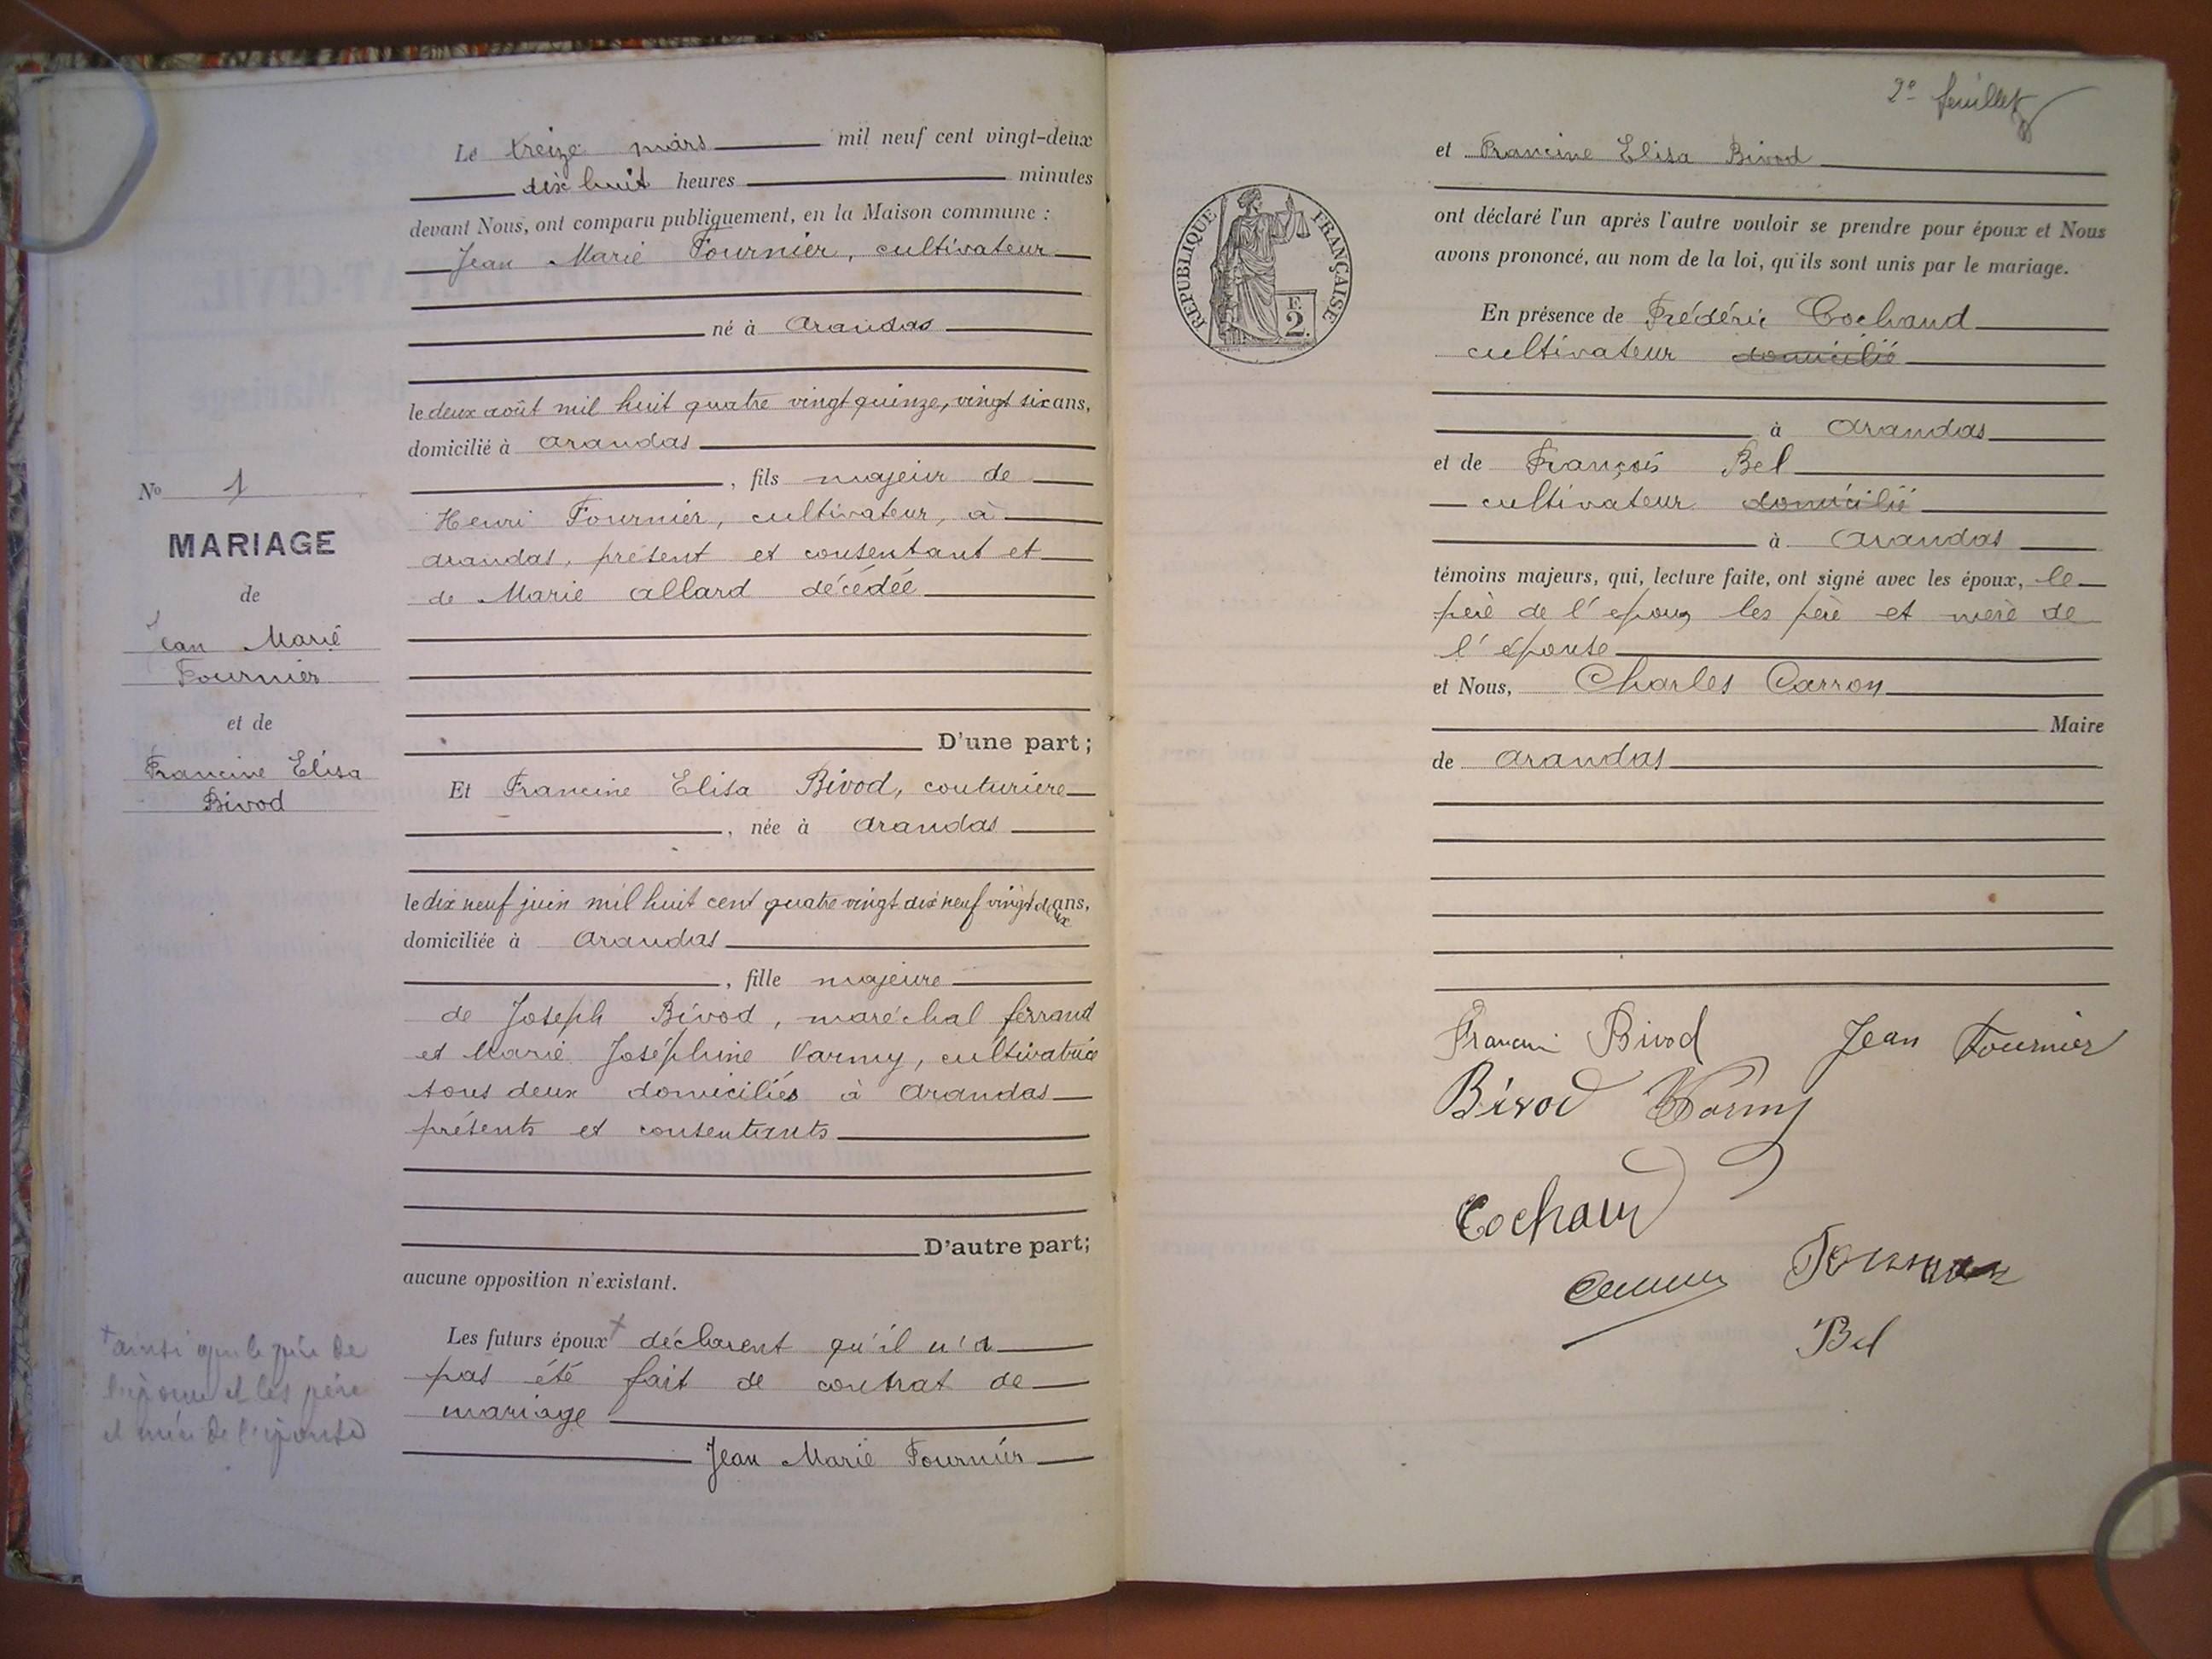 Le treize mars mil neuf cent vingt-deux
dix huit heures minutes
devant Nous, ont comparu publiquement, en la Maison commune :
Jean Marie Fournier, cultivateur
né à Arandas
le deux août mil huit quatre vingt quinze, vingt six ans,
domicilié à Arandas
, fils majeur de
Henri Fournier, cultivateur, à
Arandas, présent et consentant et
de Marie Allard décédée
D'une part ;
Et Francine Elisa Bivod, couturière
, née à Arandas
le dix neuf juin mil huit cent quatre vingt dix neuf vingt deux ans,
domiciliée à Arandas
, fille majeure
de Joseph Bivod, maréchal ferrand
et Marie Joséphine Varmy, cultivatrice
tous deux domiciliés à Arandas
présents et consentants
D'autre part;
aucune opposition n'existant.
Les futurs époux + déclarent qu'il n'a
pas été fait de contrat de
mariage
Jean Marie Fournier
No 1
MARIAGE
de
Jean Marie
Fournier
et de
Francine Elisa
Bivod
+ ainsi que le père de
l'époux et les père
et mère de l'épouse
2e feuillet
et Francine Elisa Bivod
ont déclaré l'un après l'autre vouloir se prendre pour époux et Nous
avons prononcé, au nom de la loi, qu'ils sont unis par le mariage.
En présence de Frédéric Cochaud
cultivateur domicilié
à Arandas
et de François Bel
cultivateur domicilié
à Arandas
témoins majeurs, qui, lecture faite, ont signé avec les époux, le
père de l'époux les père et mère de
l'épouse
et Nous, Charles Carron
Maire
de Arandas
RÉPUBLIQUE FRANÇAISE
E.
2.
Francine Bivod Jean Fournier
Bivod Varmy
Cochaud
Fournier
Bel